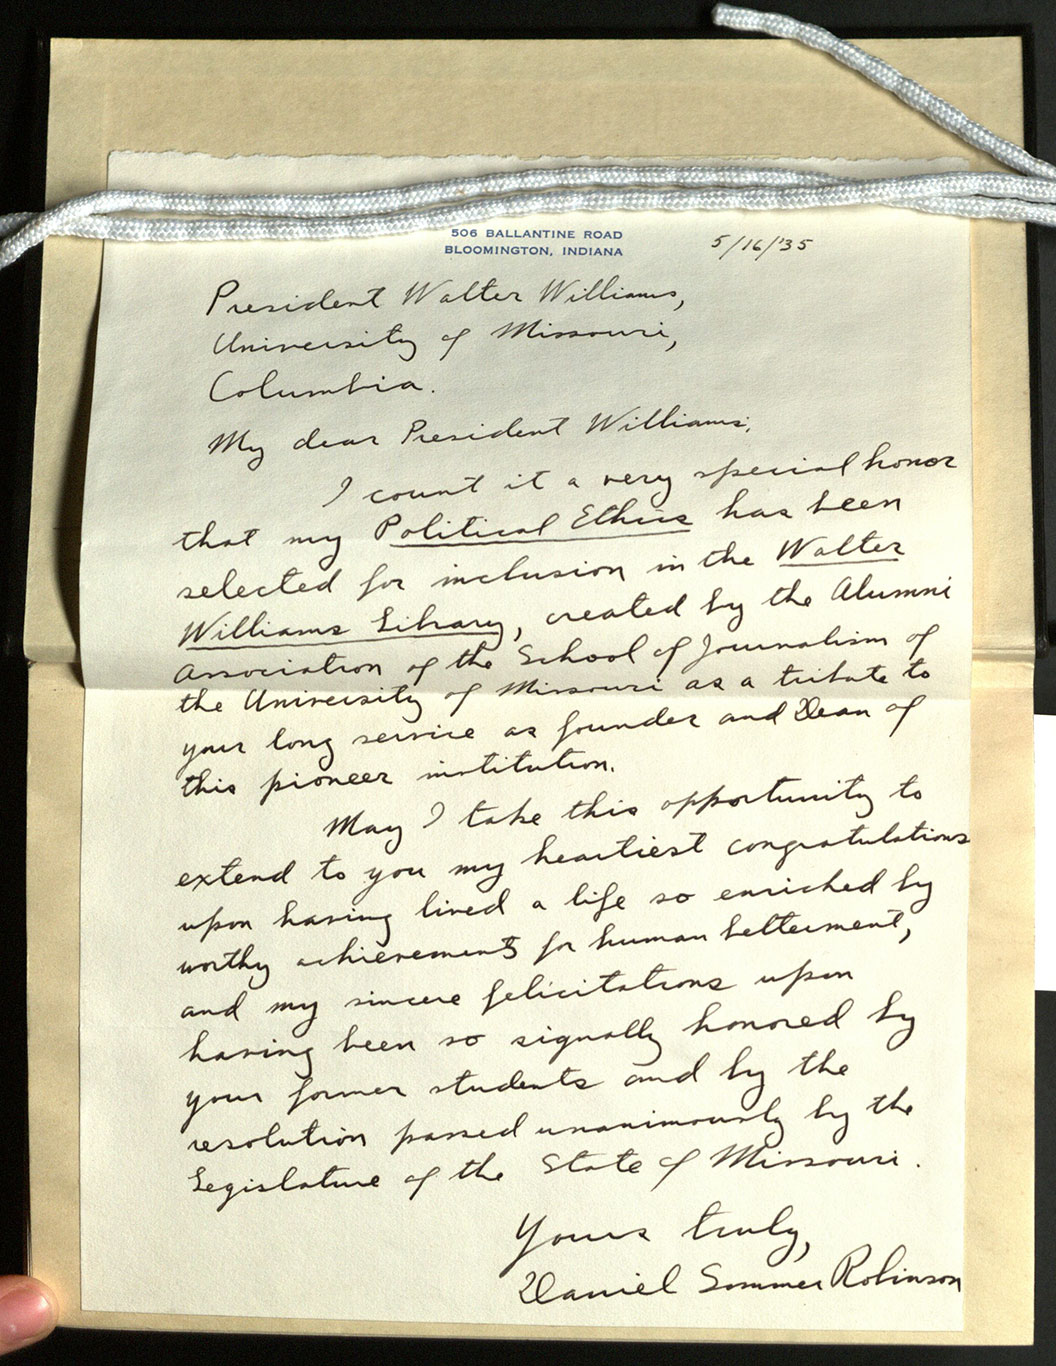 506 BALLANTINE ROAD
BLOOMINGTON, INDIANA
5/16/'35
President Walter Williams,
University of Missouri,
Columbia.
My dear President Williams,
I count it a very special honor
that my Political Ethics has been
selected for inclusion in the Walter
Williams Library, created by the Alumni
Association of the School of Journalism of
the University of Missouri as a tribute to
your long service as founder and Dean of
this pioneer institution.
May I take this opportunity to
extend to you my heartiest congratulations
upon having lived a life so enriched by
worthy achievements for human betterment,
and my sincere felicitations upon
having been so signally honored by
your former students and by the
resolution passed unanimously by the
Legislature of the State of Missouri.
Yours truly,
Daniel Sommer Robinson